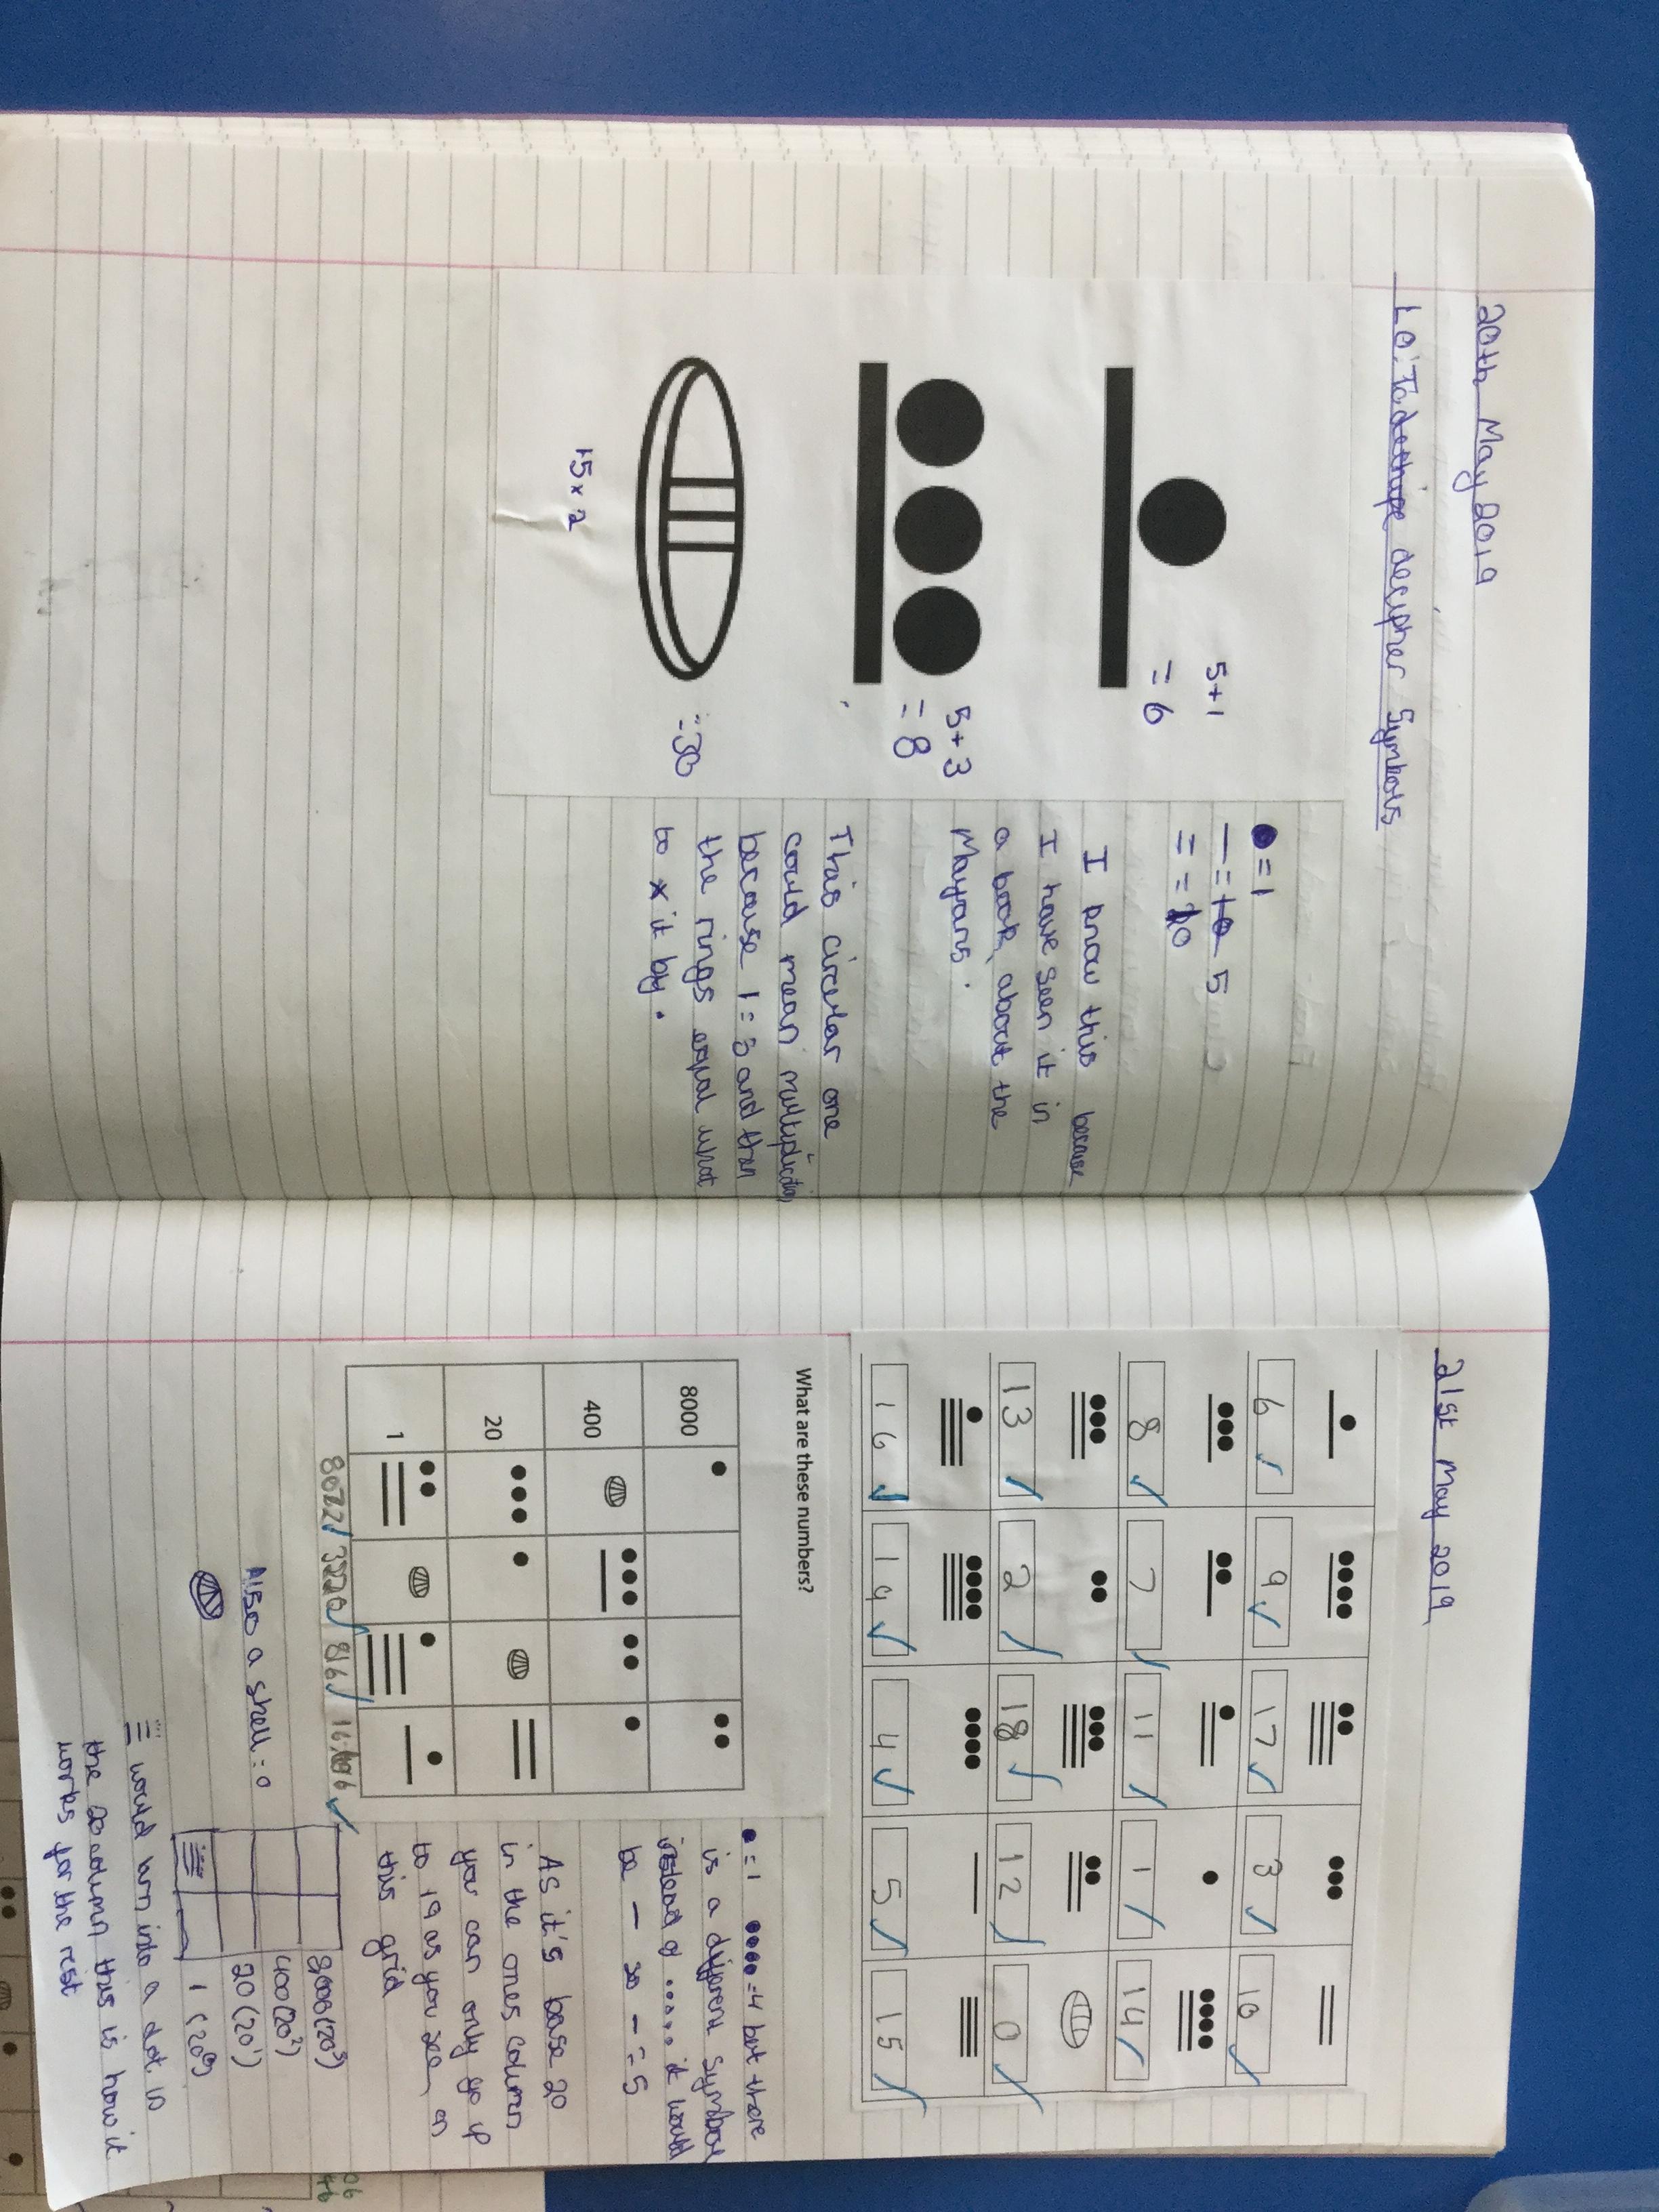 20th May 2019
LO: To decipher symbols
5+1
= 6
5+3
= 8
= 30
15 × 2
= 1
= 5
= 10
I know this because
I have seen it in
a book about the
Mayans.
This circular one
could mean multiplication
because 1 = 5 and then
the rings equal what
to × it by.
21st May 2019
6 9 17 3 10
8 7 11 1 14
13 2 18 12 0
16 19 4 5 15
What are these numbers?
8000
400
20
1
8072 3220 816 16,606
Also a shell = 0
= 1 = 4 but there
is a different symbol
instead of ..... it would
be — so — = 5
As it's base 20
in the ones column
you can only go up
to 19 as you see on
this grid
8,000 (20³)
400 (20²)
20 (20¹)
1 (20⁰)
would turn into a dot in
the 20 column this is how it
works for the rest